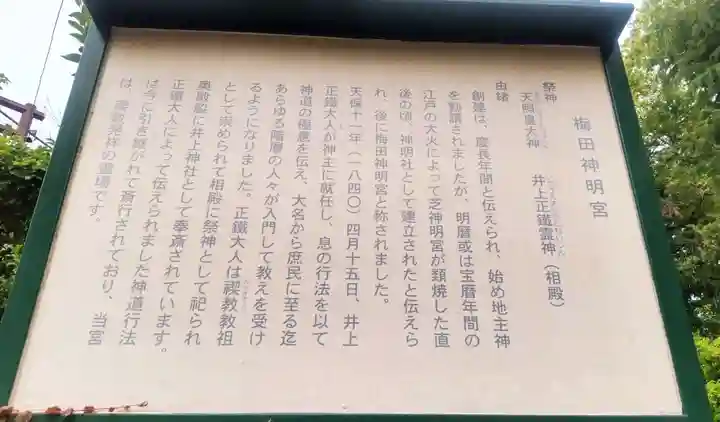 梅田神明宮
祭神
天照皇大神　井上正鐵霊神（相殿）
由緒
創建は、慶長年間と伝えられ、始め地主神
を勧請されましたが、明暦或は宝暦年間の
江戸の大火によって芝神明宮が類焼した直
後の頃、神明社として建立されたと伝えら
れ、後に梅田神明宮と称されました。
天保十一年（一八四〇）四月十五日、井上
正鐵大人が神主に就任し、息の行法を以て
神道の極意を伝え、大名から庶民に至る迄
あらゆる階層の人々が入門して教えを受け
るようになりました。正鐵大人は禊教教祖
として崇められて相殿に祭神として祀られ
奥殿に井上神社として奉斎されています。
正鐵大人によって伝えられました神道行法
は今に引き継がれて斎行されており、当宮
は、禊教発祥の霊場です。